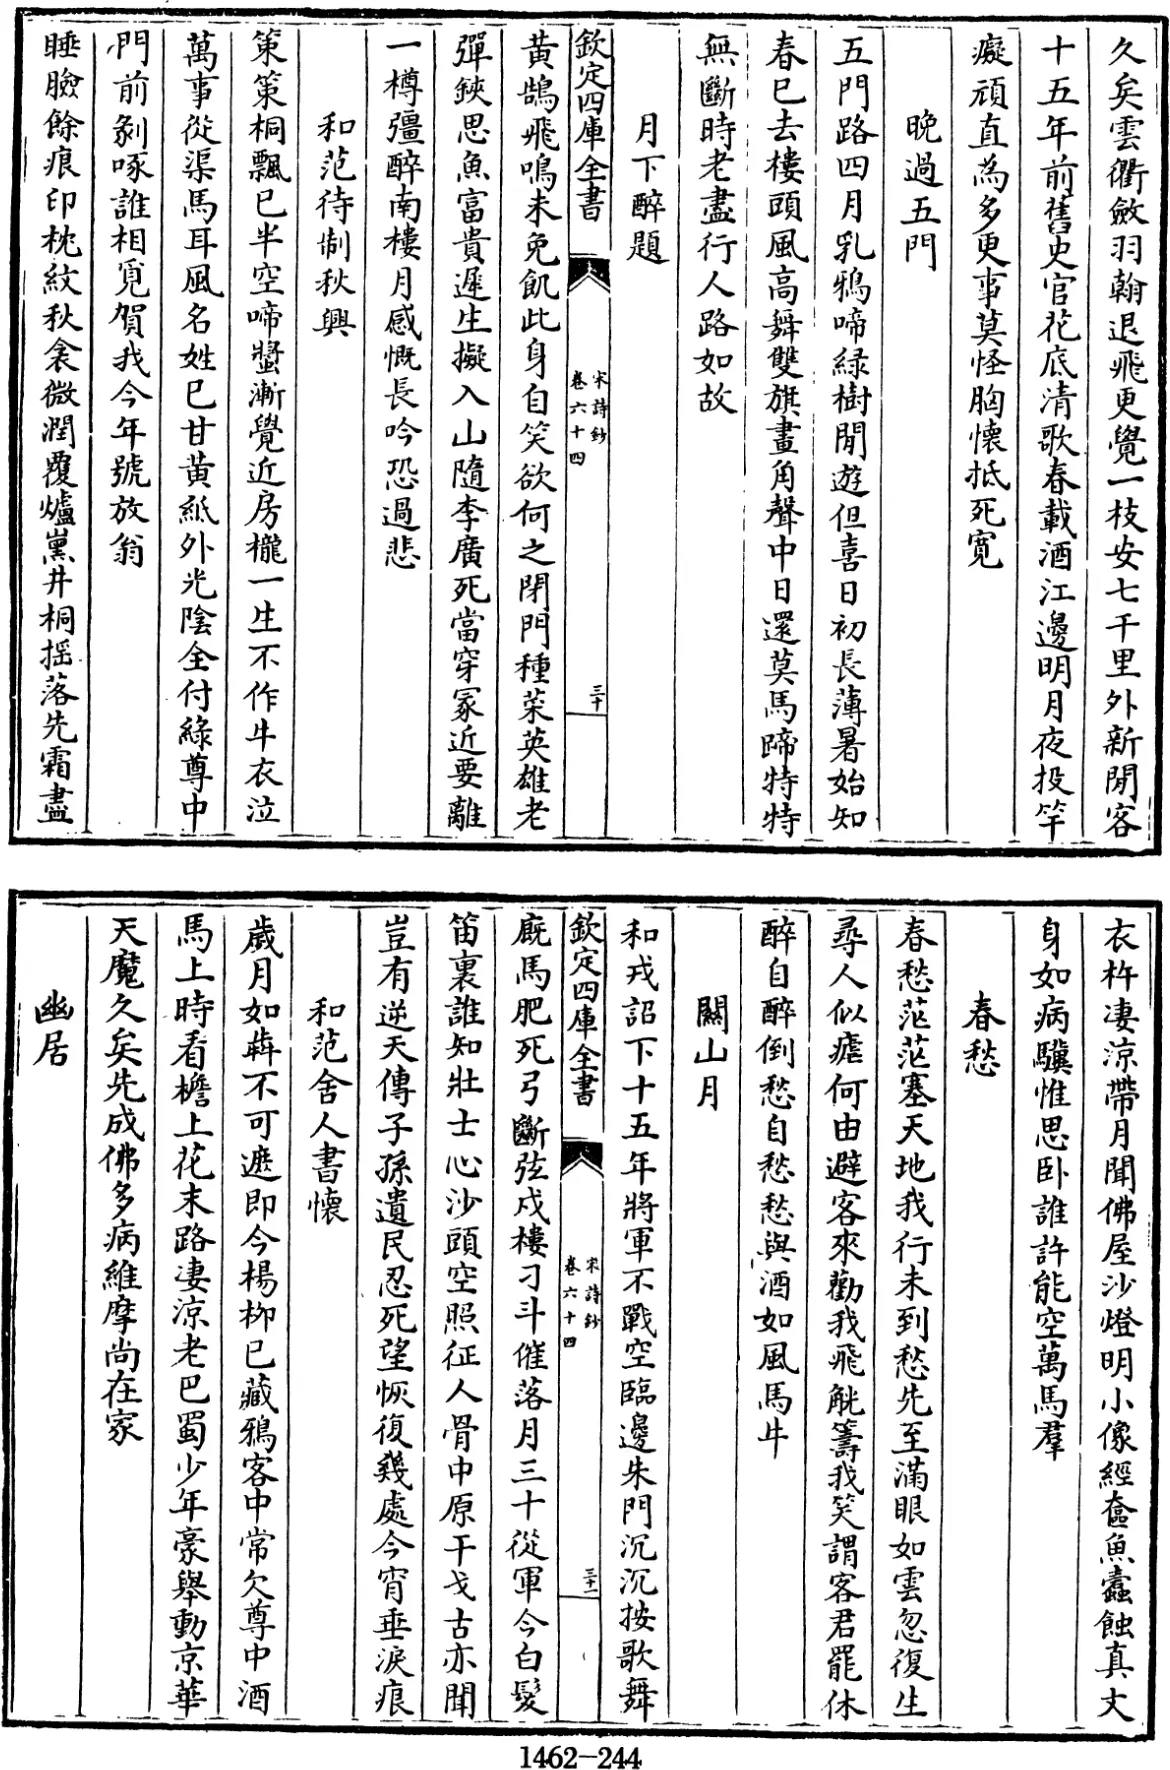 久矣雲衢斂羽翰退飛更覺一枝安七千里外新閒客
十五年前舊史官花底清歌春載酒江邊明月夜投竿
癡頑直為多更事莫怪胸懷抵死寛
晚過五門
五門路四月乳鴉啼緑樹閒遊但喜日初長薄暑始知
春已去樓頭風高舞雙旗畫角聲中日還莫馬蹄特特
無斷時老盡行人路如故
月下醉題
欽定四庫全書
宋詩鈔
卷六十四
三十
黄鵠飛鳴未免飢此身自笑欲何之閉門種菜英雄老
彈鋏思魚富貴遲生擬入山隨李廣死當穿冢近要離
一樽彊醉南樓月感慨長吟恐過悲
和范待制秋興
策策桐飄已半空啼螿漸覺近房櫳一生不作牛衣泣
萬事從渠馬耳風名姓已甘黄紙外光陰全付綠尊中
門前剝啄誰相覓賀我今年號放翁
睡臉餘痕印枕紋秋衾微潤覆爐熏井桐揺落先霜盡
衣杵凄涼帶月聞佛屋沙燈明小像經奩魚蠹蝕真文
身如病驥惟思卧誰許能空萬馬羣
春愁
春愁茫茫塞天地我行未到愁先至滿眼如雲忽復生
尋人似瘧何由避客來勸我飛觥籌我笑謂客君罷休
醉自醉倒愁自愁愁與酒如風馬牛
關山月
和戎詔下十五年將軍不戰空臨邊朱門沉沉按歌舞
欽定四庫全書
宋詩鈔
卷六十四
三十一
廐馬肥死弓斷弦戍樓刁斗催落月三十從軍今白髮
笛裏誰知壯士心沙頭空照征人骨中原干戈古亦聞
豈有逆天傳子孫遺民忍死望恢復幾處今宵垂淚痕
和范舍人書懷
歲月如犇不可遮即今楊栁已藏鴉客中常欠尊中酒
馬上時看檐上花末路凄涼老巴蜀少年豪舉動京華
天魔久矣先成佛多病維摩尚在家
幽居
1462-244